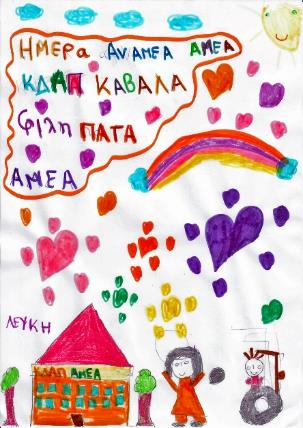 ΗΜΕΡα ΑΝΑΜΕΑ ΑΜΕΑ
ΚΔΑΠ ΚΑΒΑΛΑ
Φιλη ΠΑΤΑ
ΑΜΕΑ
ΛΕΥΚΗ
ΚΔΑΠ ΑΜΕΑ